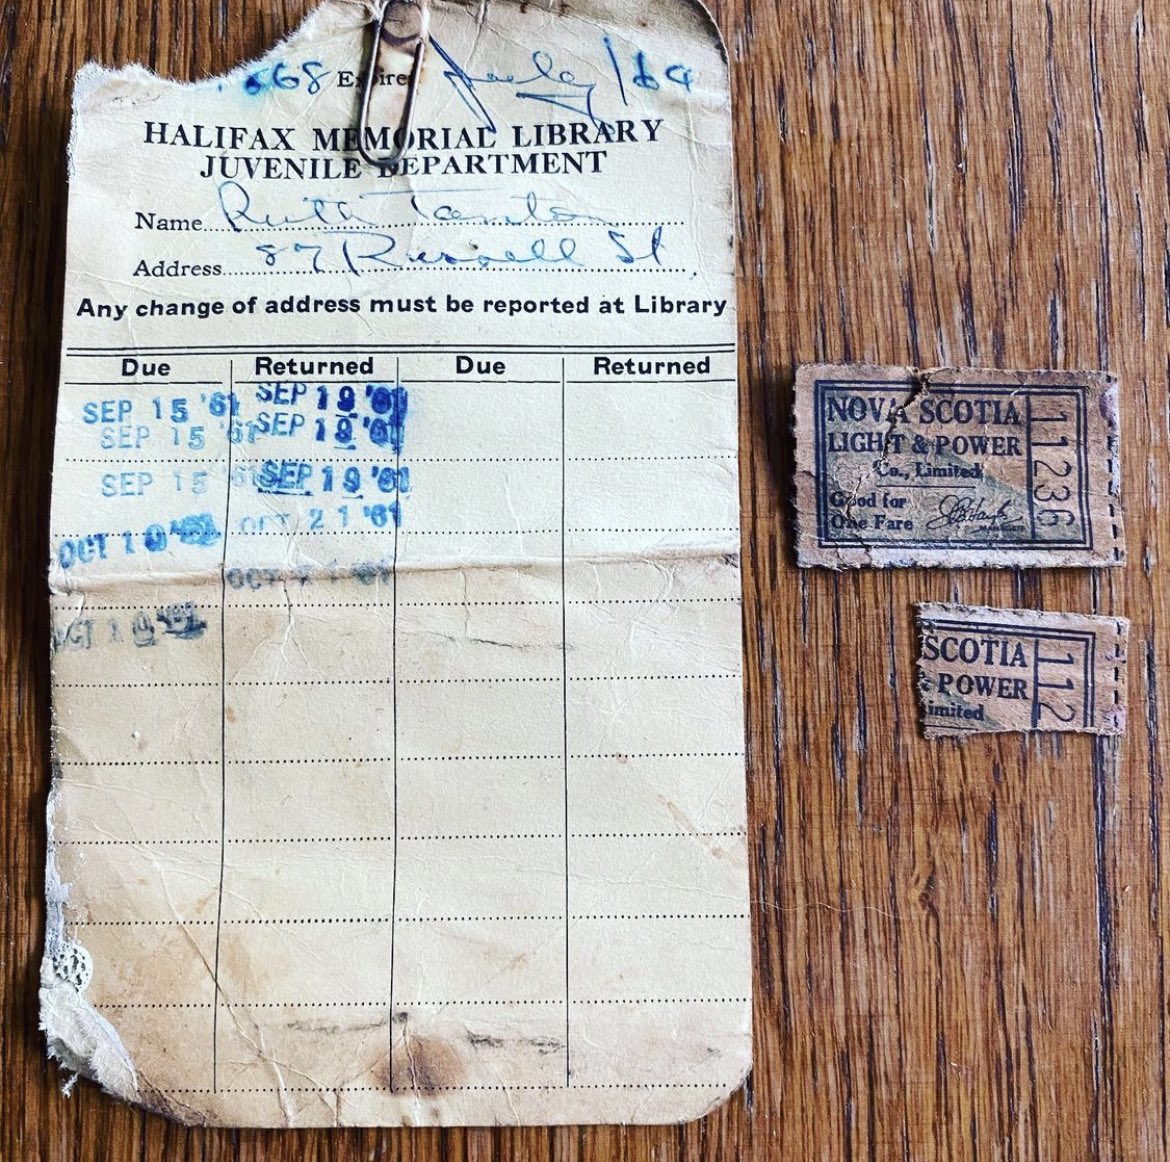 668 Expires July/64
HALIFAX MEMORIAL LIBRARY
JUVENILE DEPARTMENT
Name Ruth
Address 87 Russell St.
Any change of address must be reported at Library
Due Returned Due Returned
SEP 15 '61 SEP 19 '61
SEP 15 '61 SEP 19 '61
SEP 15 '61 SEP 19 '61
OCT 10 '61 OCT 21 '61
OCT 21 '61
OCT 10 '61
NOVA SCOTIA
LIGHT & POWER
Co., Limited
Good for
One Fare
11236
SCOTIA
& POWER
imited
112